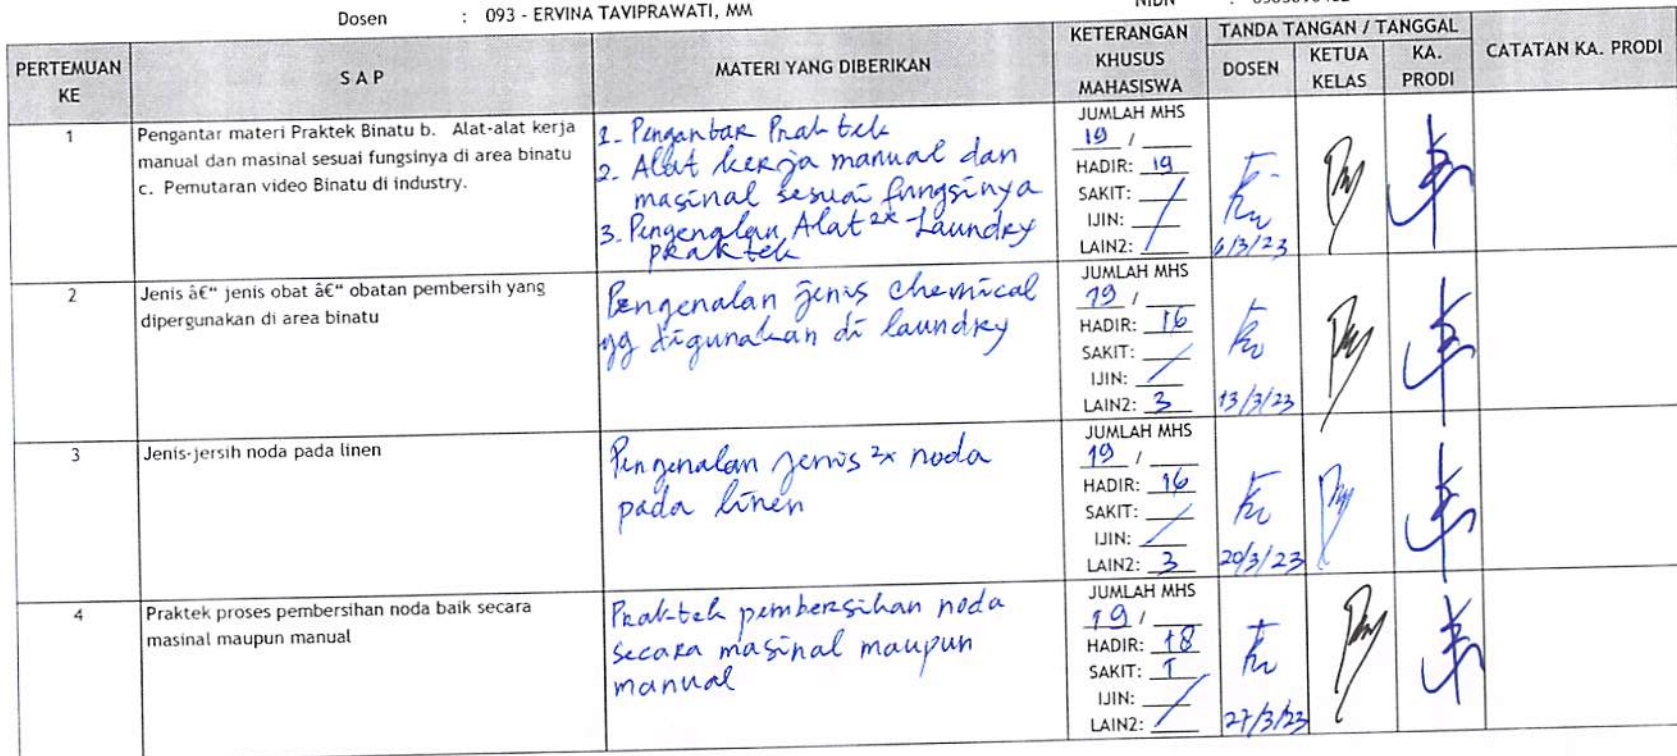 Dosen : 093 - ERVINA TAVIPRAWATI, MM
NIDN :
PERTEMUAN KE
S A P
MATERI YANG DIBERIKAN
KETERANGAN KHUSUS MAHASISWA
TANDA TANGAN / TANGGAL
DOSEN
KETUA KELAS
KA. PRODI
CATATAN KA. PRODI
1
Pengantar materi Praktek Binatu b. Alat-alat kerja
manual dan masinal sesuai fungsinya di area binatu
c. Pemutaran video Binatu di industry.
1. Pengantar Praktek
2. Alat kerja manual dan
masinal sesuai fungsinya
3. Pengenalan Alat2x Laundry
praktek
JUMLAH MHS
19 /
HADIR: 19
SAKIT: /
IJIN: /
LAIN2: /
6/3/23
2
Jenis â€“ jenis obat â€“ obatan pembersih yang
dipergunakan di area binatu
Pengenalan jenis chemical
yg digunakan di laundry
JUMLAH MHS
19 /
HADIR: 16
SAKIT: /
IJIN: /
LAIN2: 3
13/3/23
3
Jenis-jersih noda pada linen
Pengenalan jenis 2x noda
pada linen
JUMLAH MHS
19 /
HADIR: 16
SAKIT: /
IJIN: /
LAIN2: 3
20/3/23
4
Praktek proses pembersihan noda baik secara
masinal maupun manual
Praktek pembersihan noda
secara masinal maupun
manual
JUMLAH MHS
19 /
HADIR: 18
SAKIT: 1
IJIN: /
LAIN2: /
27/3/23